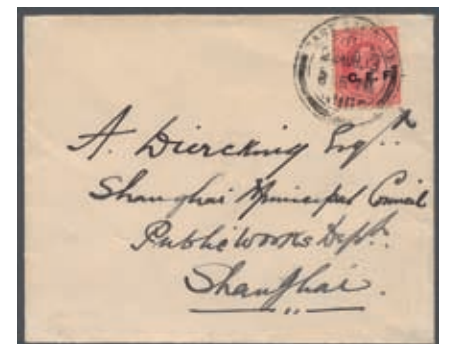 C. E. F.
A. Diercking Esqre
Shanghai Municipal Council
Public Works Dept.
Shanghai.